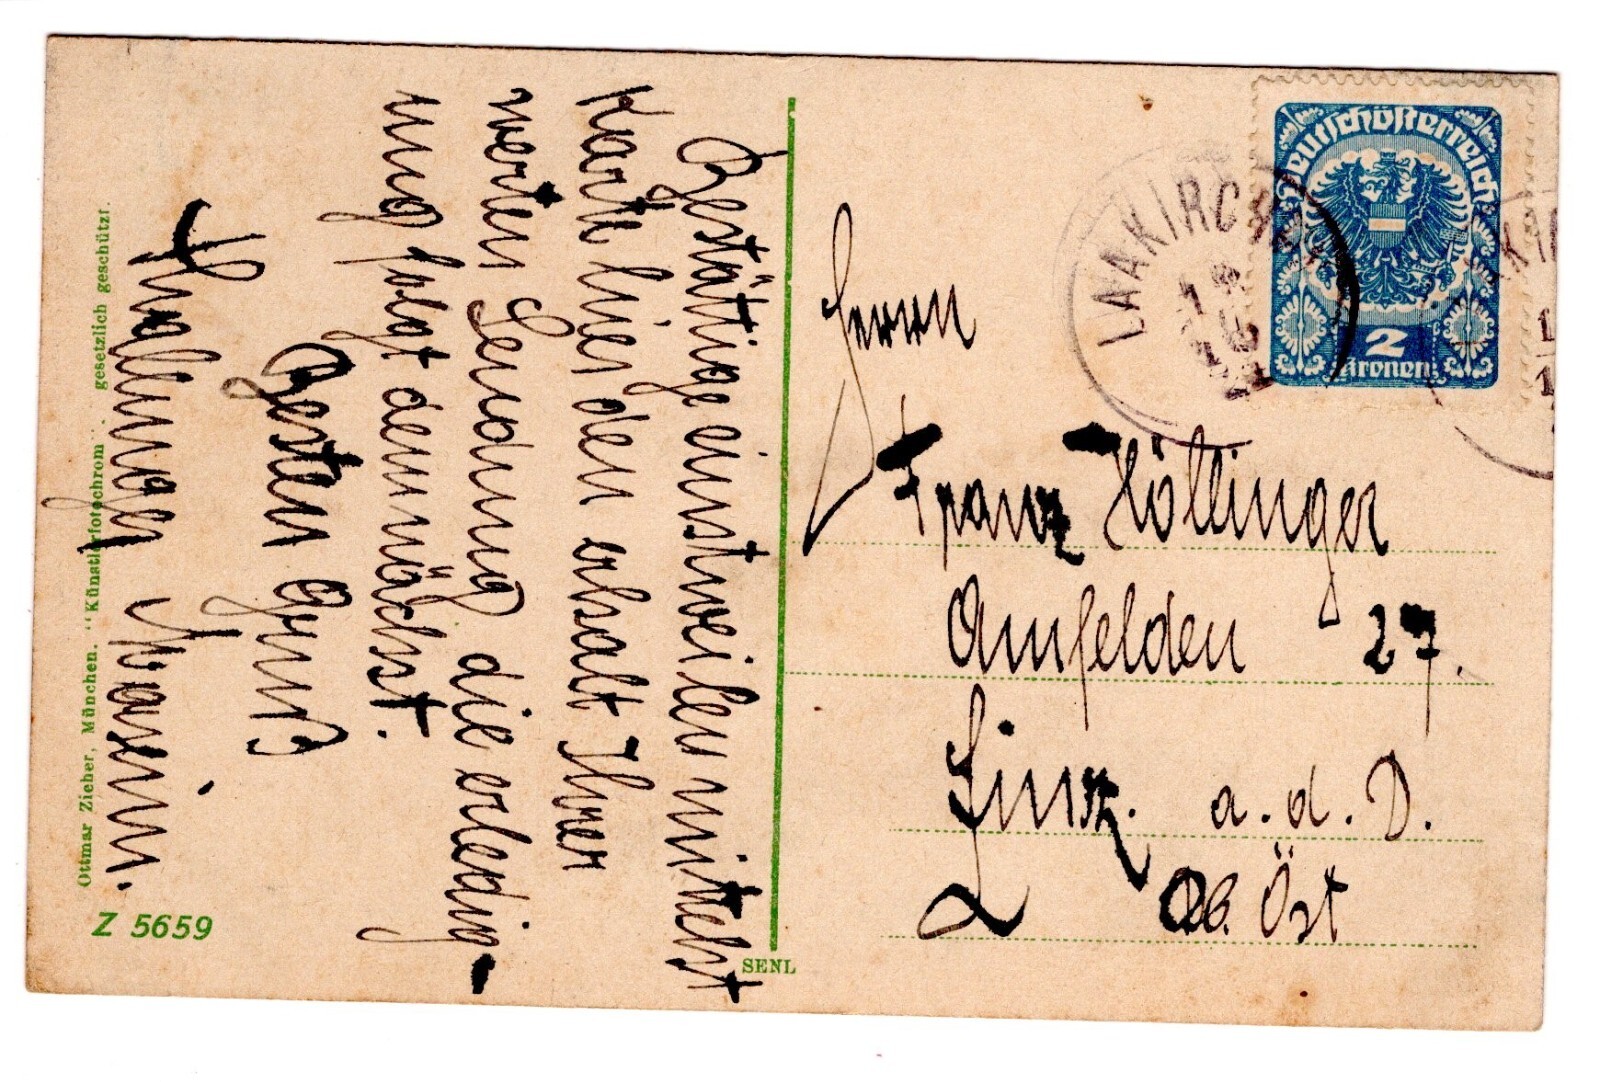 Bestätige einstweilen mittelst
Karte hier den erhalt Ihrer
werten Sendung die erledig-
ung folgt demnächst.
Besten Gruß
Deutschösterreich
2
Kronen
LAAKIRCHEN
Herrn
Franz Höllinger
Amfelden 27.
Linz. a. d. D.
Ob. Öst
Ottmar Zieher, München. "Künstlerfotochrom". gesetzlich geschützt.
Z 5659
SENL